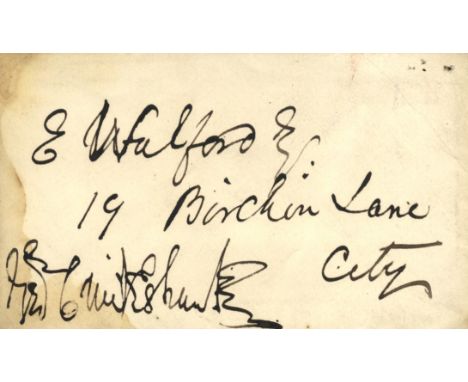 E Walford Esq.
19 Birchin Lane
City
Geo Cruikshank